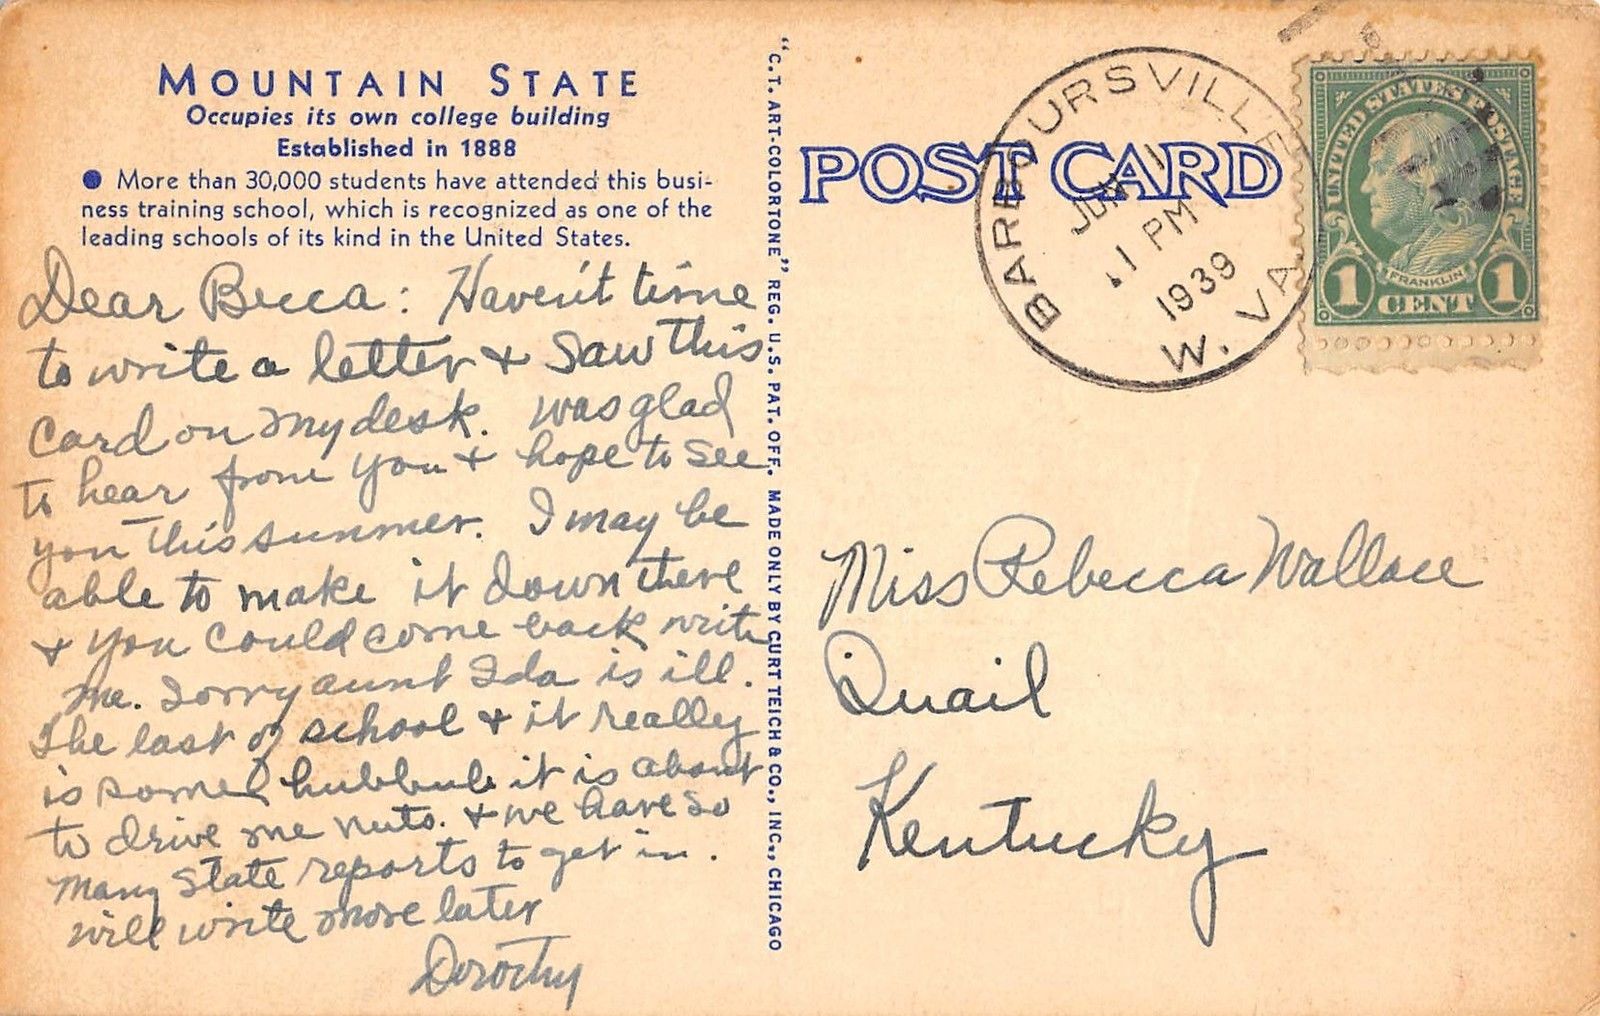 MOUNTAIN STATE
Occupies its own college building
Established in 1888
● More than 30,000 students have attended this busi-
ness training school, which is recognized as one of the
leading schools of its kind in the United States.
Dear Becca: Haven't time
to write a letter + saw this
card on my desk. was glad
to hear from you + hope to see
you this summer. I may be
able to make it down there
+ you could come back write
me. Sorry aunt Ida is ill.
The last of school + it really
is some hubbub it is about
to drive me nuts. + we have so
many state reports to get in.
will write more later
Dorothy
"C.T. ART-COLORTONE" REG. U.S. PAT. OFF. MADE ONLY BY CURT TEICH & CO., INC., CHICAGO
POST CARD
BARBOURSVILLE
JUN 1
1 PM
1939
W. VA.
UNITED STATES POSTAGE
FRANKLIN
1 CENT 1
Miss Rebecca Wallace
Quail
Kentucky